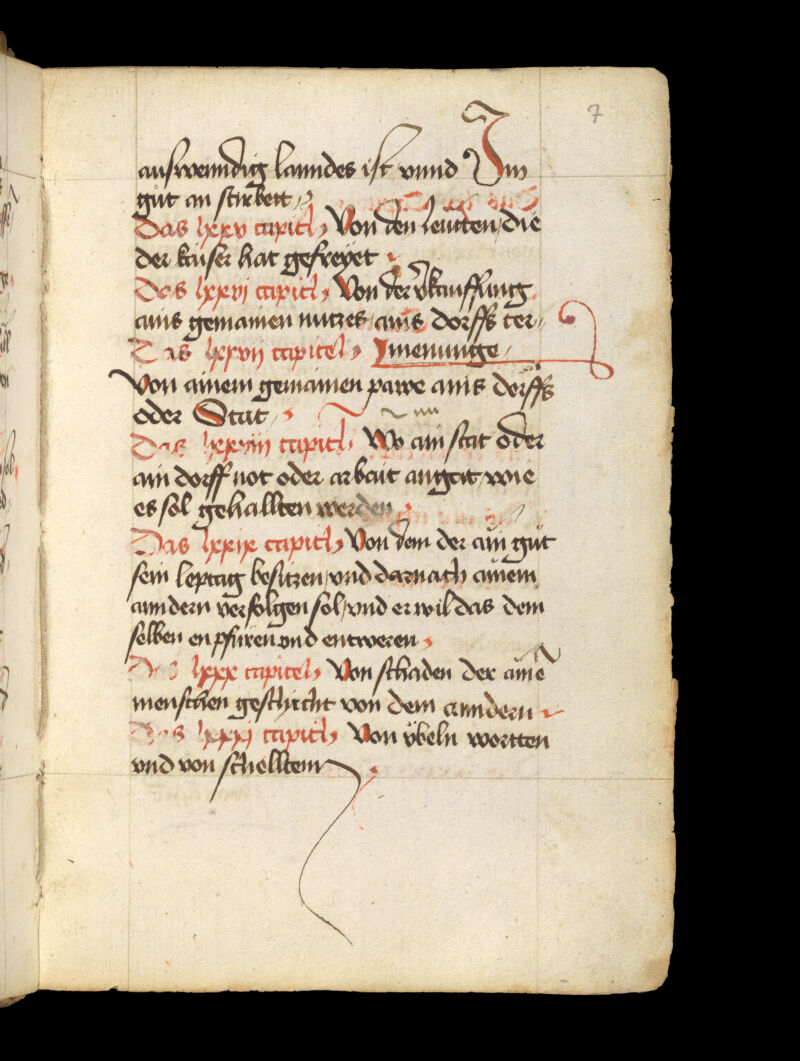 7
auswenndig lanndes ist vnnd Im
gůt an stirbett
Das lxxv capitl Von den leutten die
der kaiser hat gefreyet
Das lxxvj capitl Von der v̄kauffung
ains gemainen nutzes ains dorffs ter
Das lxxvij capitel minunge
Von ainem gemainen pawe ains dorffs
oder Stat
Das lxxviij capitl Wo ain stat oder
ain dorff not oder arbait angeit wie
es sol gehallten werden
Das lxxix capitl Von dem der ain gůt
sein leptag besitzen vnd darnach ainem
anndern verfolgen sol vnd er wil das dem
selben enpfüren vnd entweren
Das lxxx capitel Von schaden der aine
menschen geschicht von dem anndern
Das lxxxj capitl Von v̈beln wortten
vnd von schellten